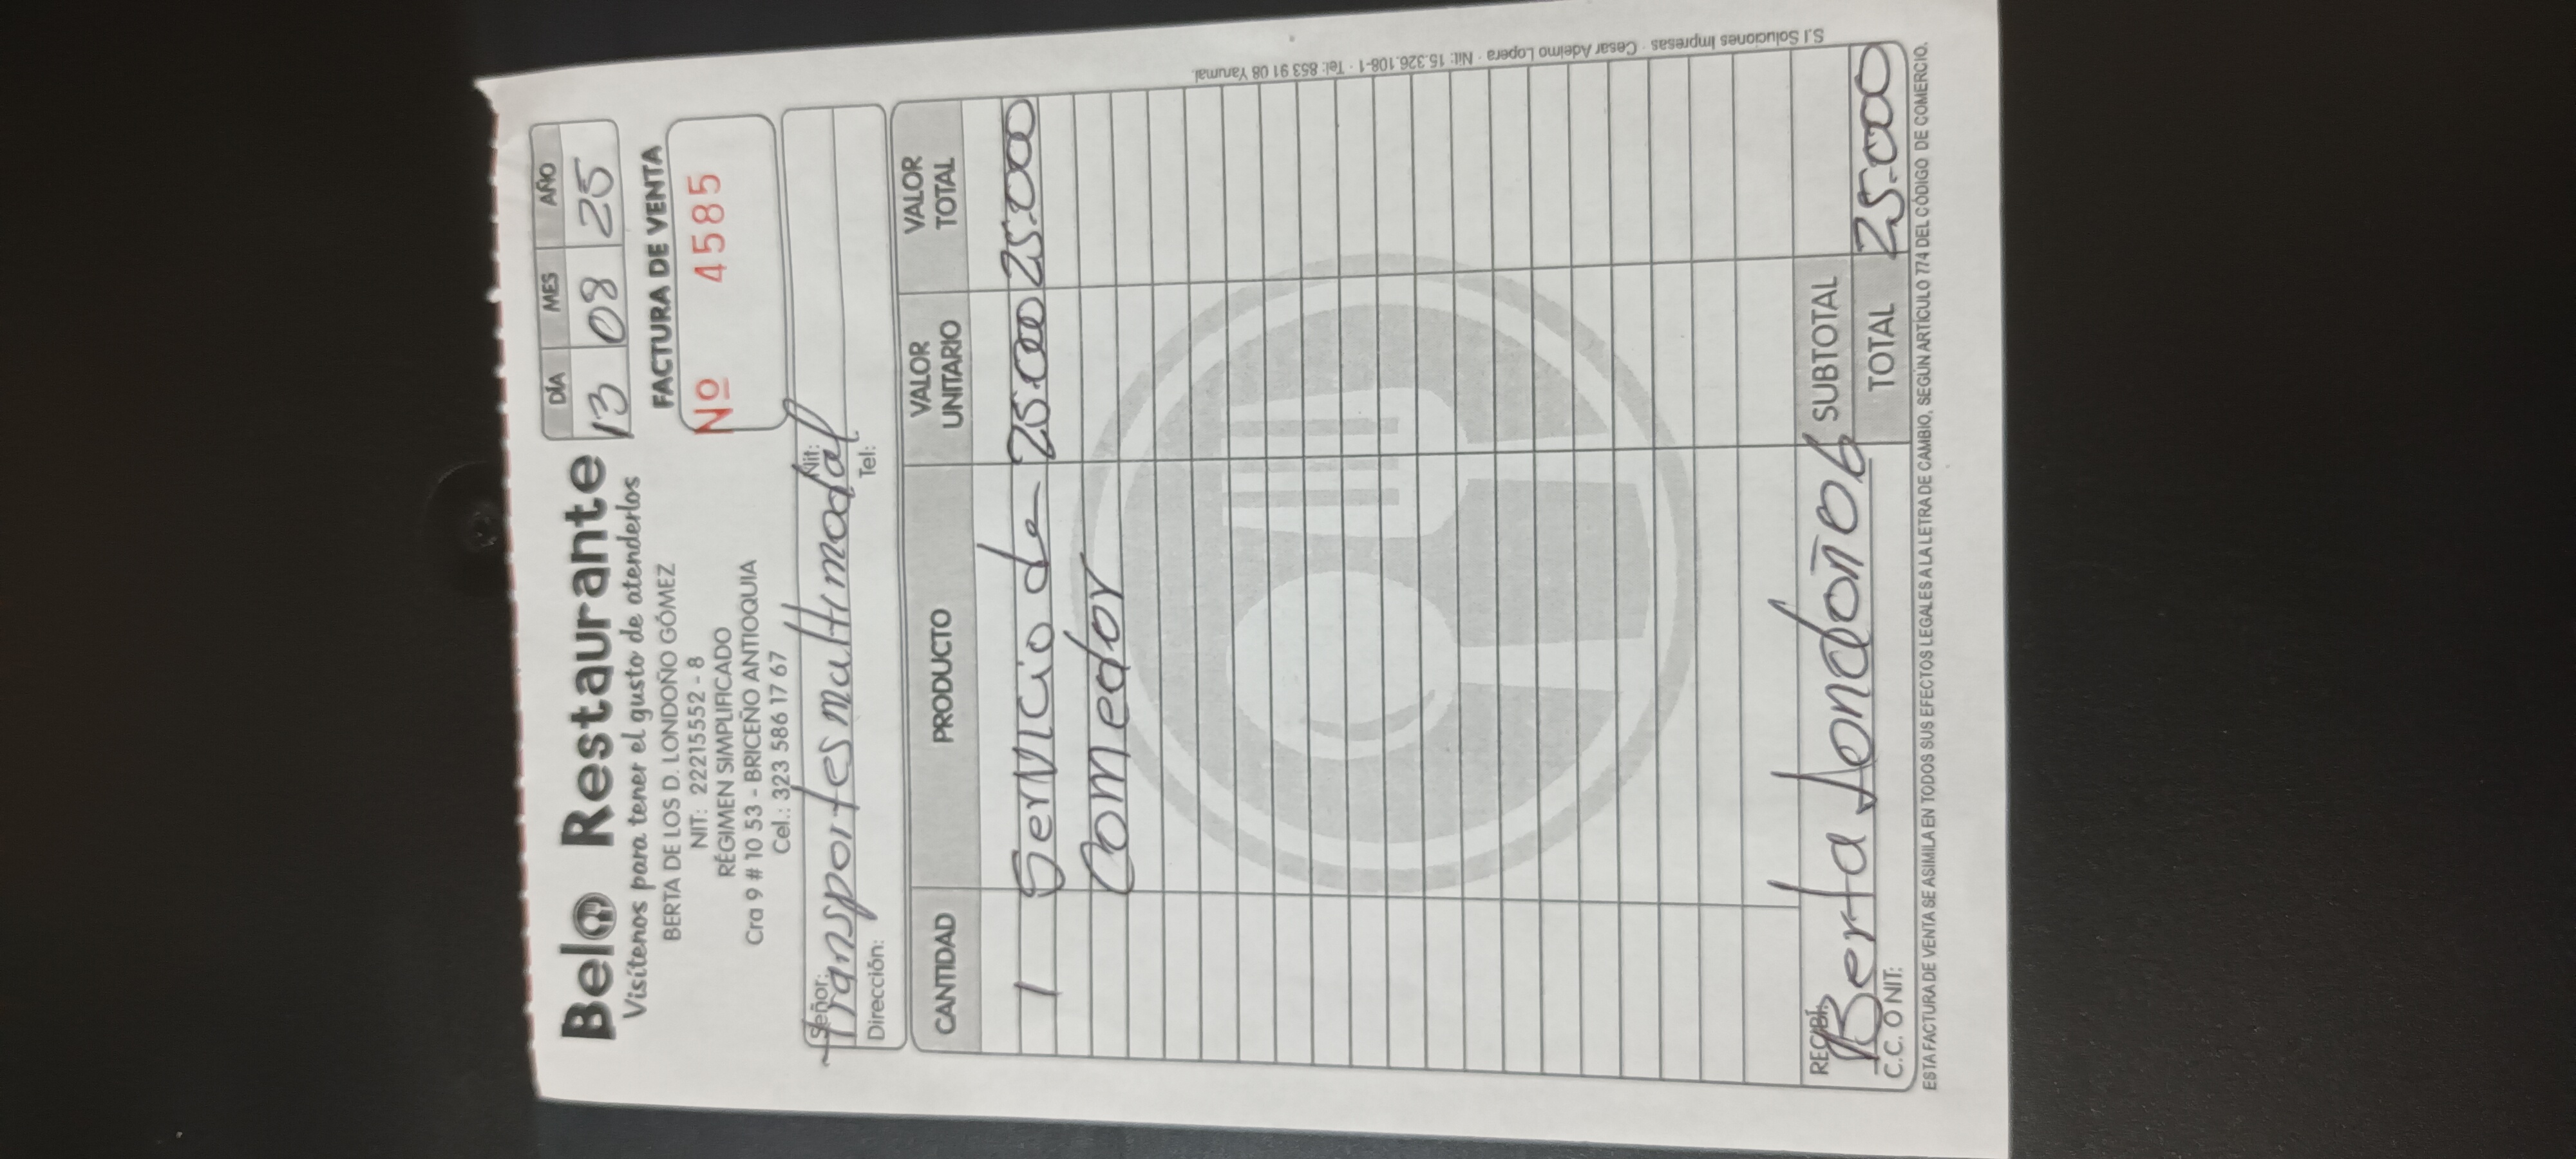 Belo Restaurante
Visítenos para tener el gusto de atenderlos
BERTA DE LOS D. LONDOÑO GÓMEZ
NIT: 22215552 - 8
RÉGIMEN SIMPLIFICADO
Cra 9 # 10 53 - BRICEÑO ANTIOQUIA
Cel.: 323 586 17 67
DÍA MES AÑO
13 08 25
FACTURA DE VENTA
Nº 4585
Señor: Transportes multimodal Nit:
Dirección: Tel:
CANTIDAD PRODUCTO VALOR UNITARIO VALOR TOTAL
1 Servicio de 25.000 25.000
Comedor
RECIBÍ: Berta Londoño G SUBTOTAL
C.C. O NIT: TOTAL 25.000
ESTA FACTURA DE VENTA SE ASIMILA EN TODOS SUS EFECTOS LEGALES A LA LETRA DE CAMBIO, SEGÚN ARTÍCULO 774 DEL CÓDIGO DE COMERCIO.
S.I Soluciones Impresas · Cesar Adeimo Lopera · Nit: 15.326.108-1 · Tel: 853 91 08 Yarumal.